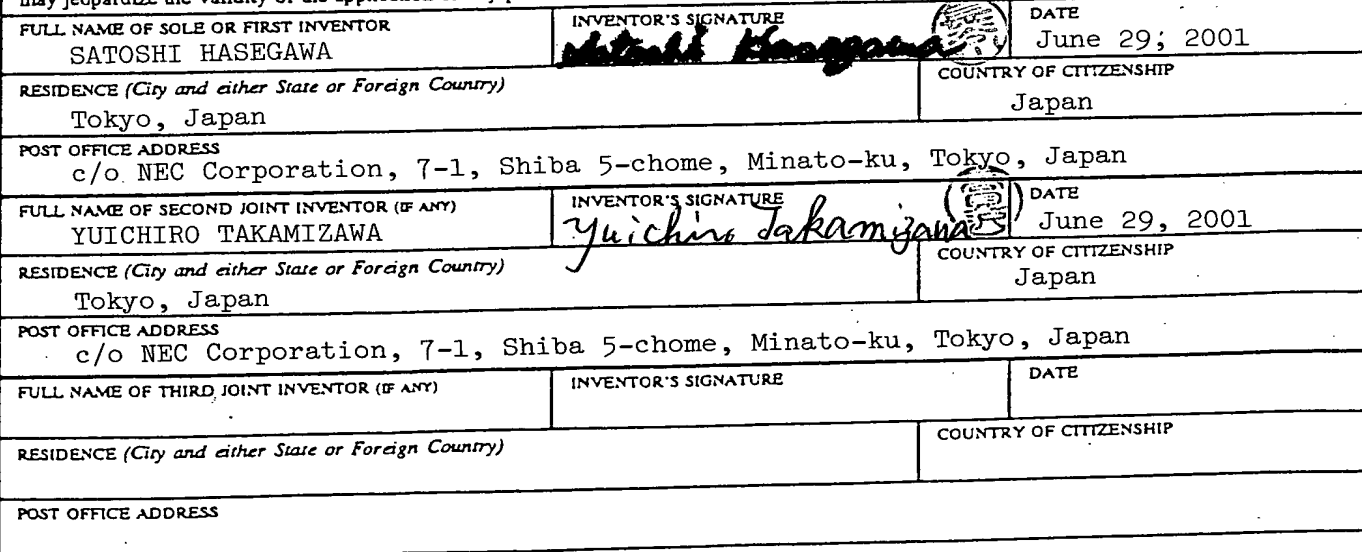 may jeopardize the validity of the application
FULL NAME OF SOLE OR FIRST INVENTOR
SATOSHI HASEGAWA
INVENTOR'S SIGNATURE
Satoshi Hasegawa
DATE
June 29; 2001
RESIDENCE (City and either State or Foreign Country)
Tokyo, Japan
COUNTRY OF CITIZENSHIP
Japan
POST OFFICE ADDRESS
c/o NEC Corporation, 7-1, Shiba 5-chome, Minato-ku, Tokyo, Japan
FULL NAME OF SECOND JOINT INVENTOR (IF ANY)
YUICHIRO TAKAMIZAWA
INVENTOR'S SIGNATURE
Yuichiro Takamizawa
DATE
June 29, 2001
RESIDENCE (City and either State or Foreign Country)
Tokyo, Japan
COUNTRY OF CITIZENSHIP
Japan
POST OFFICE ADDRESS
c/o NEC Corporation, 7-1, Shiba 5-chome, Minato-ku, Tokyo, Japan
FULL NAME OF THIRD JOINT INVENTOR (IF ANY)
INVENTOR'S SIGNATURE
DATE
RESIDENCE (City and either State or Foreign Country)
COUNTRY OF CITIZENSHIP
POST OFFICE ADDRESS